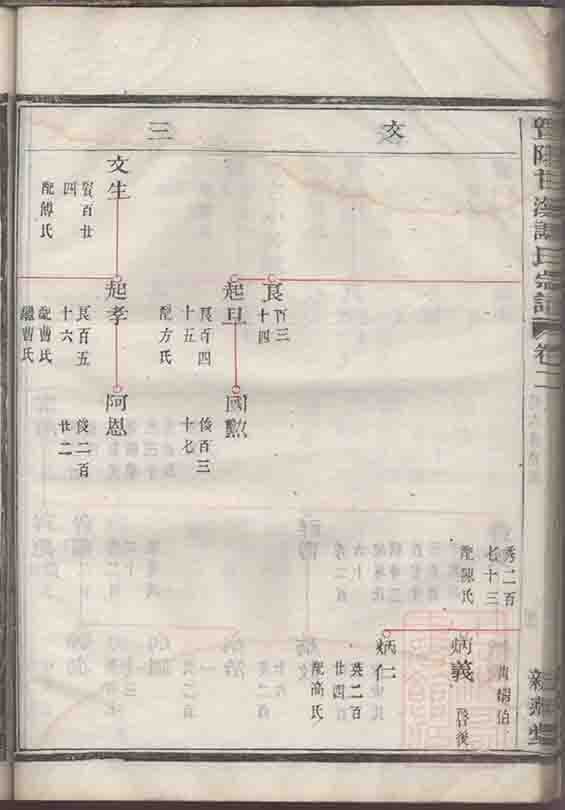 卷二
文
三
秀二百
七十三
配陳氏
炳義
啓後
炳仁
英二百
廿四
配高氏
艮
百三
十四
起旦
艮百四
十五
配方氏
國勲
俊百三
十七
文生
賢百廿
四
配傅氏
起孝
艮百五
十六
配曹氏
繼曹氏
阿恩
俊二百
廿二